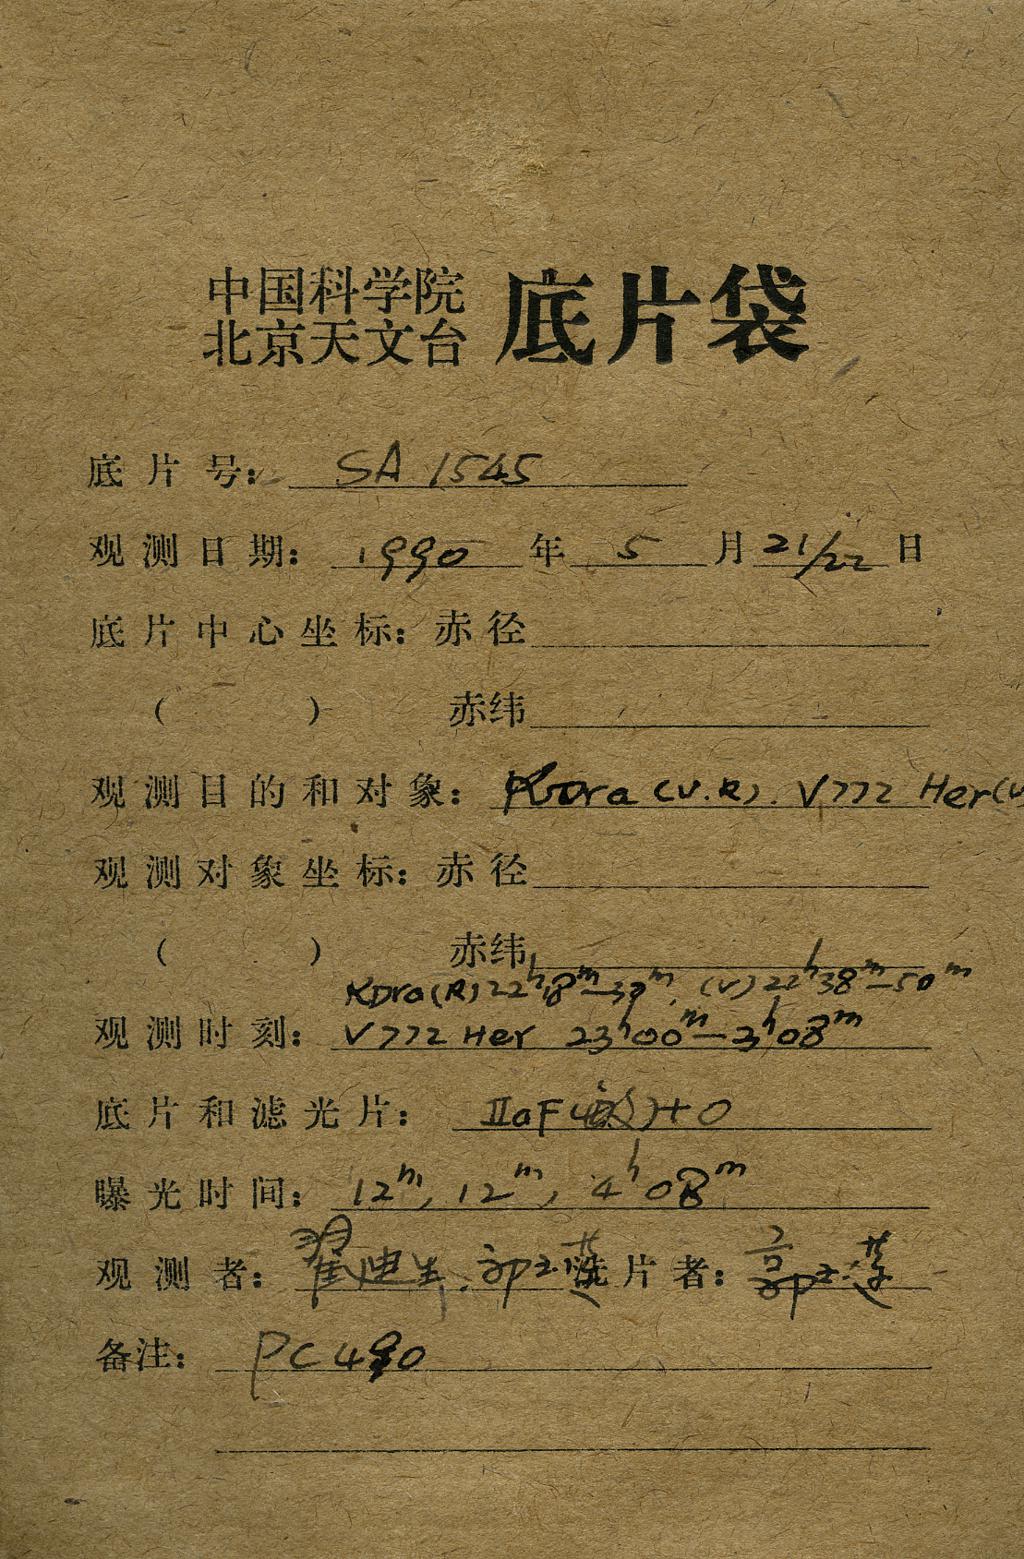 中国科学院
北京天文台 底片袋
底片号: SA 1545
观测日期: 1990 年 5 月 21/22 日
底片中心坐标: 赤径
( ) 赤纬
观测目的和对象: KDra (V.R). V772 Her(V
观测对象坐标: 赤径
( ) 赤纬
KDra(R) 22h18m-30m, (V) 22h38m-50m
观测时刻: V772 Her 23h00m-3h08m
底片和滤光片: IIaF +0
曝光时间: 12m, 12m, 4h08m
观测者: 翟迪生. 郭玉莲 洗片者: 郭玉莲
备注: PC 490